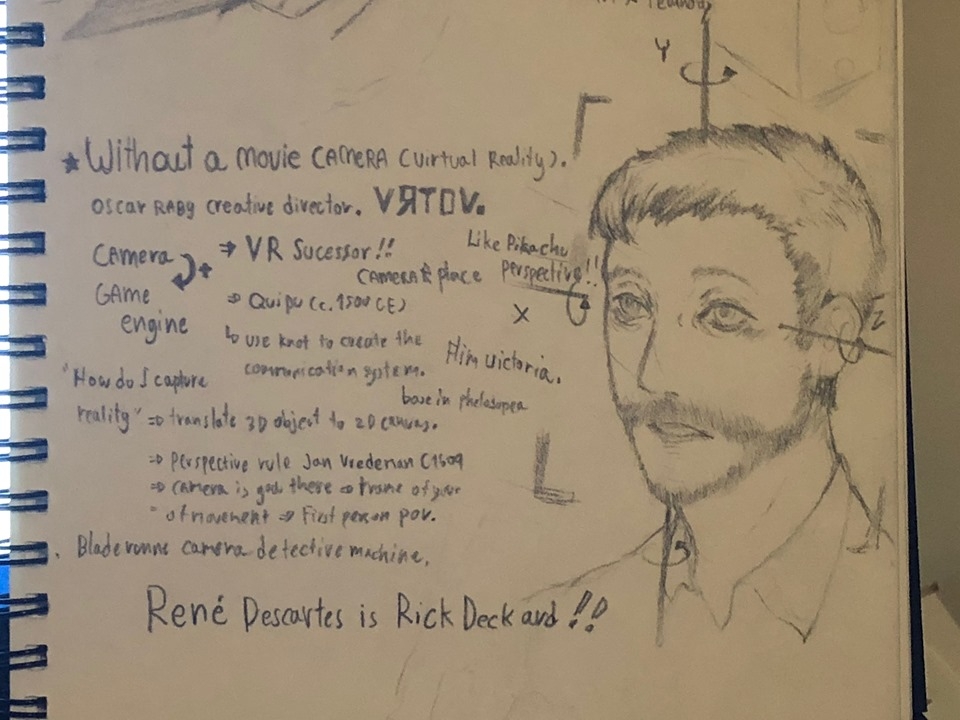 Y
★ Without a movie CAMERA (virtual Reality).
Oscar RABY creative director. VЯTOV.
Like Pikachu
CAMERA → VR Sucessor!!
CAMERA & place perspective!!
GAME ⇒ Quipu (c. 1500 CE)
X
engine
Z
↳ use knot to create the
communication system.
Film victoria.
"How do I capture
base in
reality" ⇒ translate 3D object to 2D canvas.
⇒ Perspective rule Jan Vredeman C1609
⇒ camera is god there ⇒ frame of your
" of movement ⇒ First person pov.
. Blade camera detective machine.
René Descartes is Rick Deckard!!